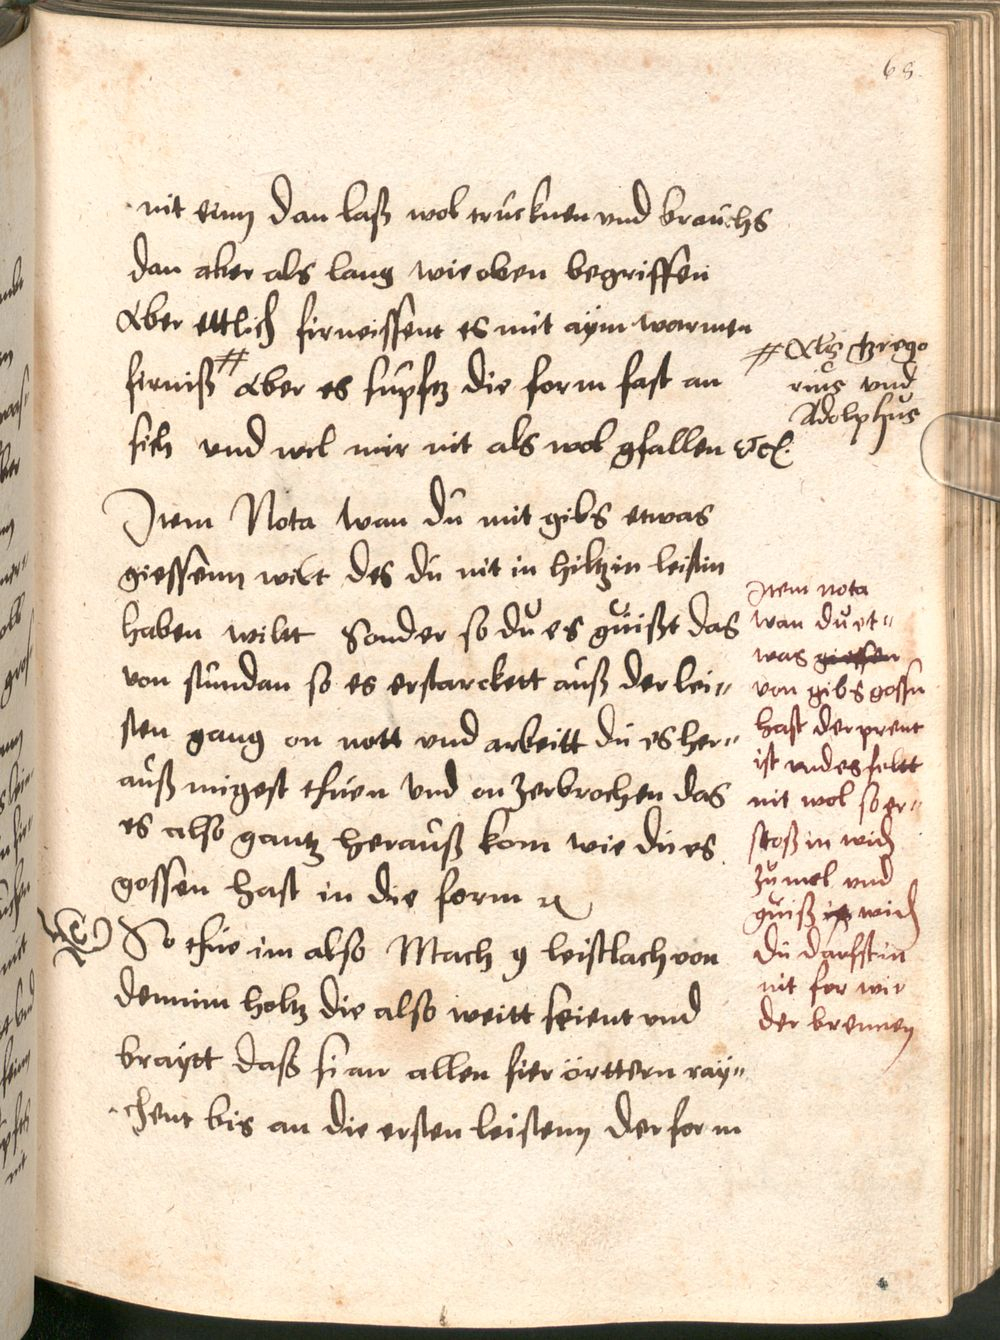 68.
nit einn dan laß wol trucknen vnd brauchs
dan aber als lang wie oben begriffen
Aber ettlich firneissent es mit aym warmen
firniß # Aber es supftz die form fast an
sich vnd wil mir nit als wol gfallen &c.
# Als Grego
rius vnd
Adolphus
Item Nota wan du mit gibs etwas
giessenn wilt des du nit in hiltzin leistin
haben wiltt Sonder so du es guißt das
von stundan so es erstarckett auß der lei=
sten gang on nott vnd arbeitt du es her=
auß migest thuen vnd on zerbrochen das
es also gantz herauß kom wie du es
gossen hast in die form
So thue im also Mach 9 leistlach von
dennim holtz die also weitt seient vnd
braytt daß si an allen fier örttern ray=
chent bis an die ersten leistenn der form
Item nota
wan du et=
was giessen
von gibs gossn
hast der prent
ist vnd es felltt
nit wol so er=
stoß in wid
zu mel vnd
guiß wid
du darfst in
nit fer wi
der brennen